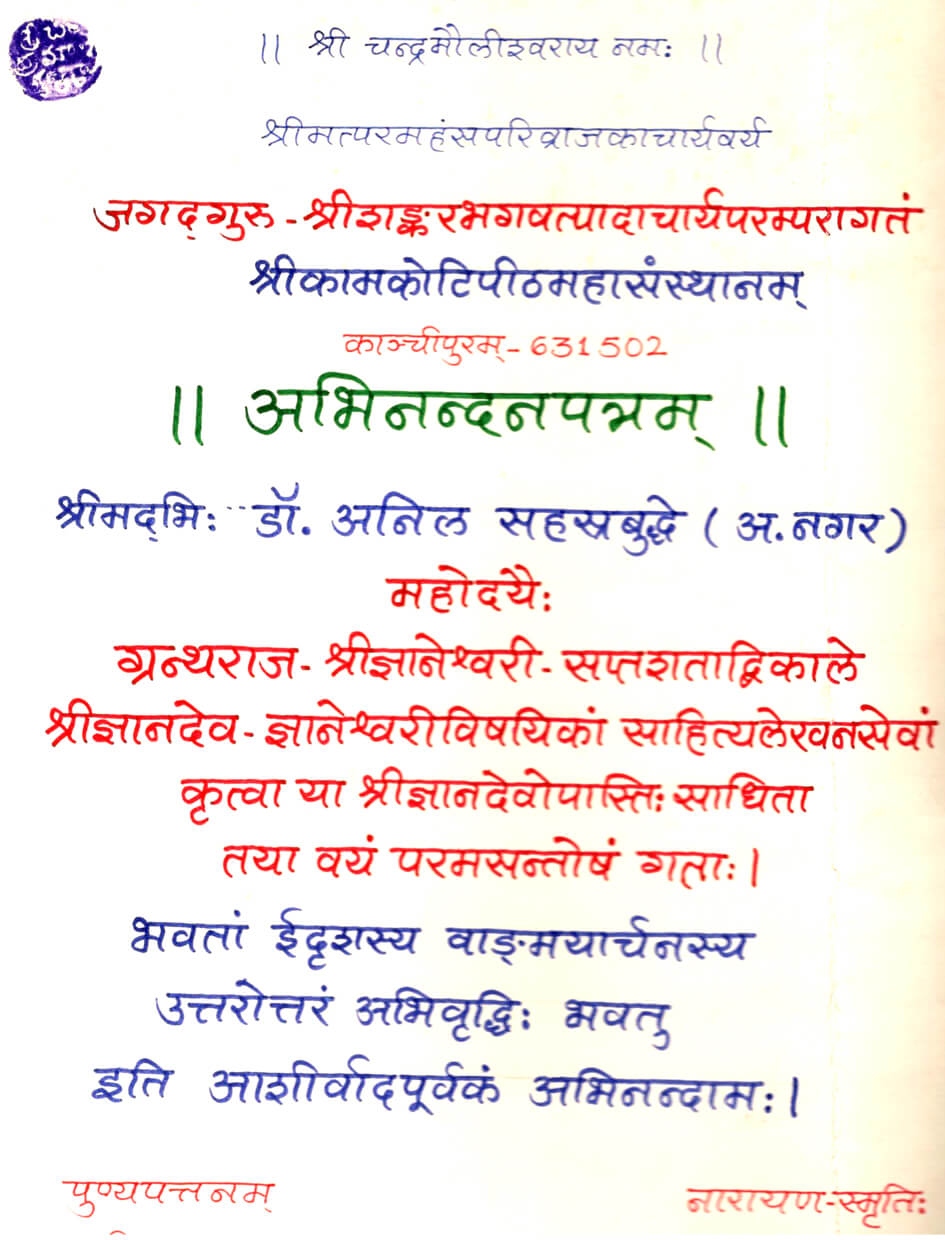 || श्री चन्द्रमौलीश्वराय नमः ||
श्रीमत्परमहंसपरिव्राजकाचार्यवर्य
जगद्गुरु - श्रीशङ्करभगवत्पादाचार्यपरम्परागतं
श्रीकामकोटिपीठमहासंस्थानम्
काञ्चीपुरम् - 631502
|| अभिनन्दनपत्रम् ||
श्रीमद्भिः डॉ. अनिल सहस्रबुद्धे (अ.नगर)
महोदयैः
ग्रन्थराज - श्रीज्ञानेश्वरी - सप्तशताद्विकाले
श्रीज्ञानदेव - ज्ञानेश्वरीविषयिकां साहित्यलेखनसेवां
कृत्वा या श्रीज्ञानदेवोपास्तिः साधिता
तया वयं परमसन्तोषं गताः।
भवतां ईदृशस्य वाङ्मयार्चनस्य
उत्तरोत्तरं अभिवृद्धिः भवतु
इति आशीर्वादपूर्वकं अभिनन्दामः।
पुण्यपत्तनम्
नारायण-स्मृतिः